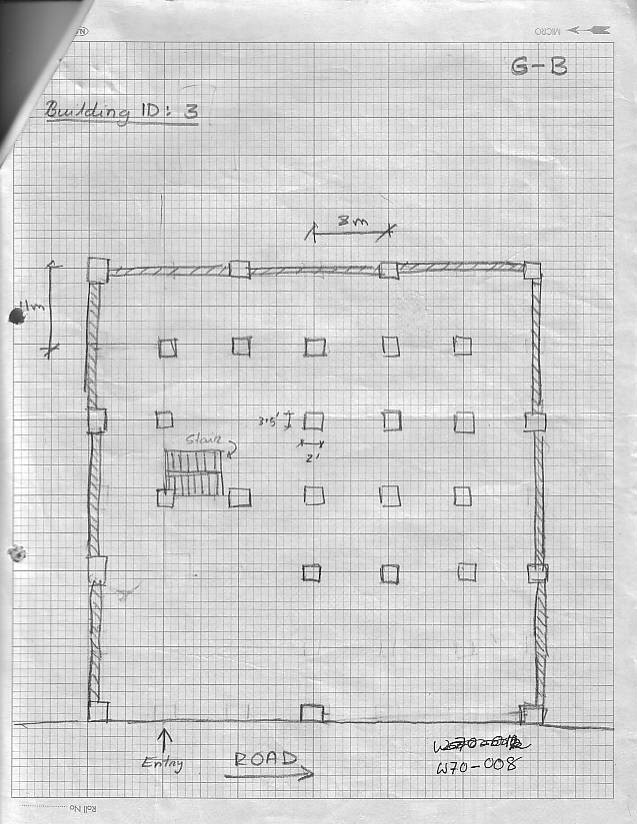 MICRO
G-B
Building ID: 3
8m
3.5'
2'
Stair
Entry
ROAD
W70-008
Roll No